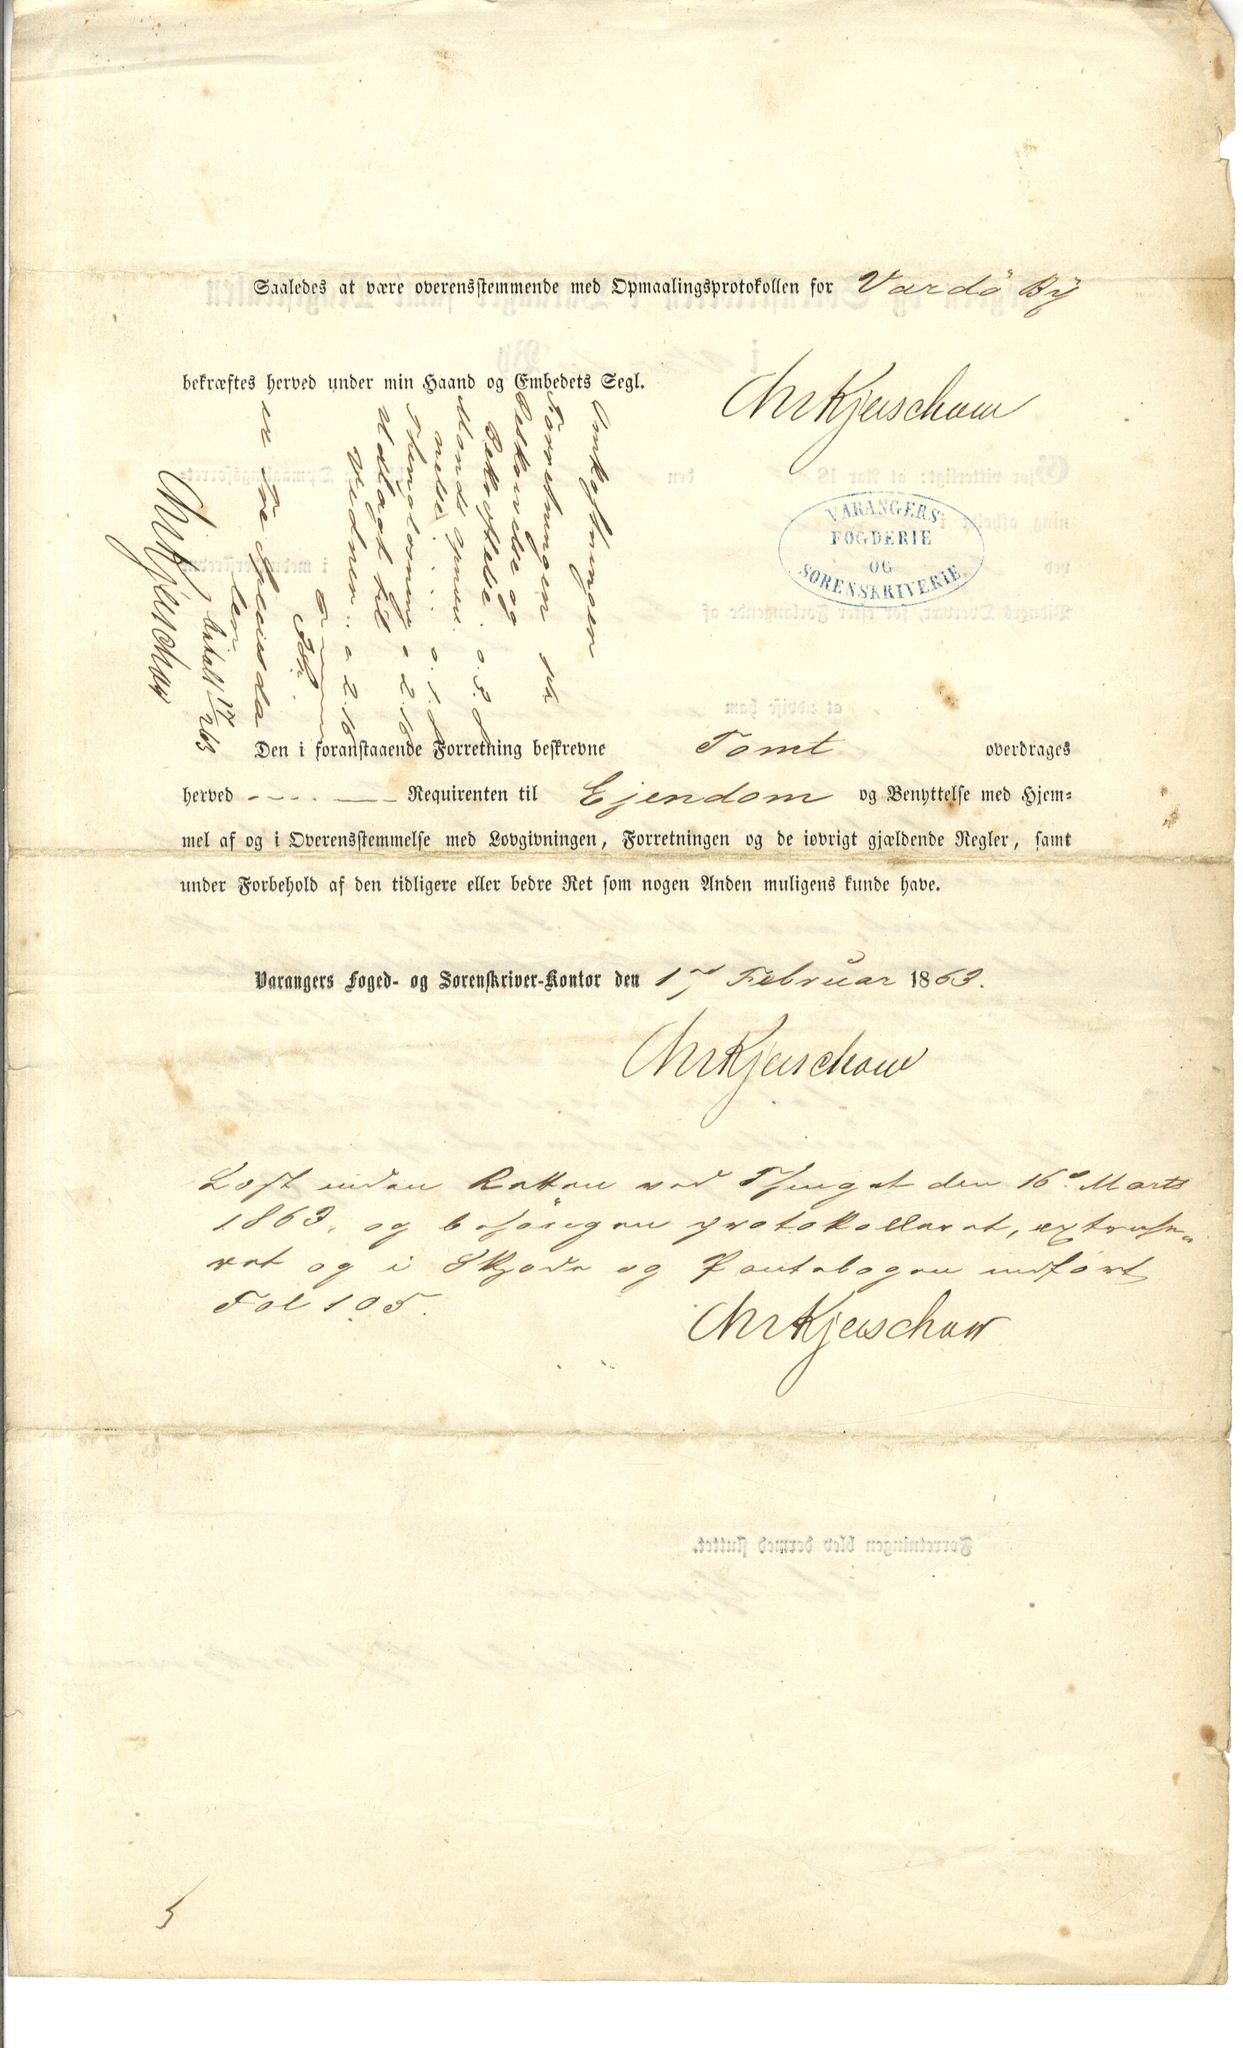 Saaledes at være overensstemmende med Opmaalingsprotokollen for Vardö By
bekræftes herved under min Haand og Embedets Segl.
Chr Kjerschow
VARANGERS
FOGDERIE
OG
SORENSKRIVERIE
Omkostningen
Forretningen
Beskrivelse og
Bekræftelse . a. 3. 8
Mænds
nelse . . . a. 1. 8
Thinglæsning a 2. 16
Udlagt til
Vidner . . a 2. 16
er Spesieda
ler
betalt 17/2 63
Chr Kjerschow
Den i foranstaaende Forretning beskrevne Tomt overdrages
herved Requirenten til Ejendom og Benyttelse med Hjem-
mel af og i Overensstemmelse med Lovgivningen, Forretningen og de iøvrigt gjældende Regler, samt
under Forbehold af den tidligere eller bedre Ret som nogen Anden muligens kunde have.
Varangers Foged- og Sorenskriver-Kontor den 17 Februar 1863.
Chr Kjerschow
Læst inden Retten ved Thinget den 16d Marts
1863. og besörgen protokolleret, extrahe-
ret og i Skjøde og Pantebogen indført
Fol 105.
Chr Kjerschow
Forretningen blev dermed sluttet.